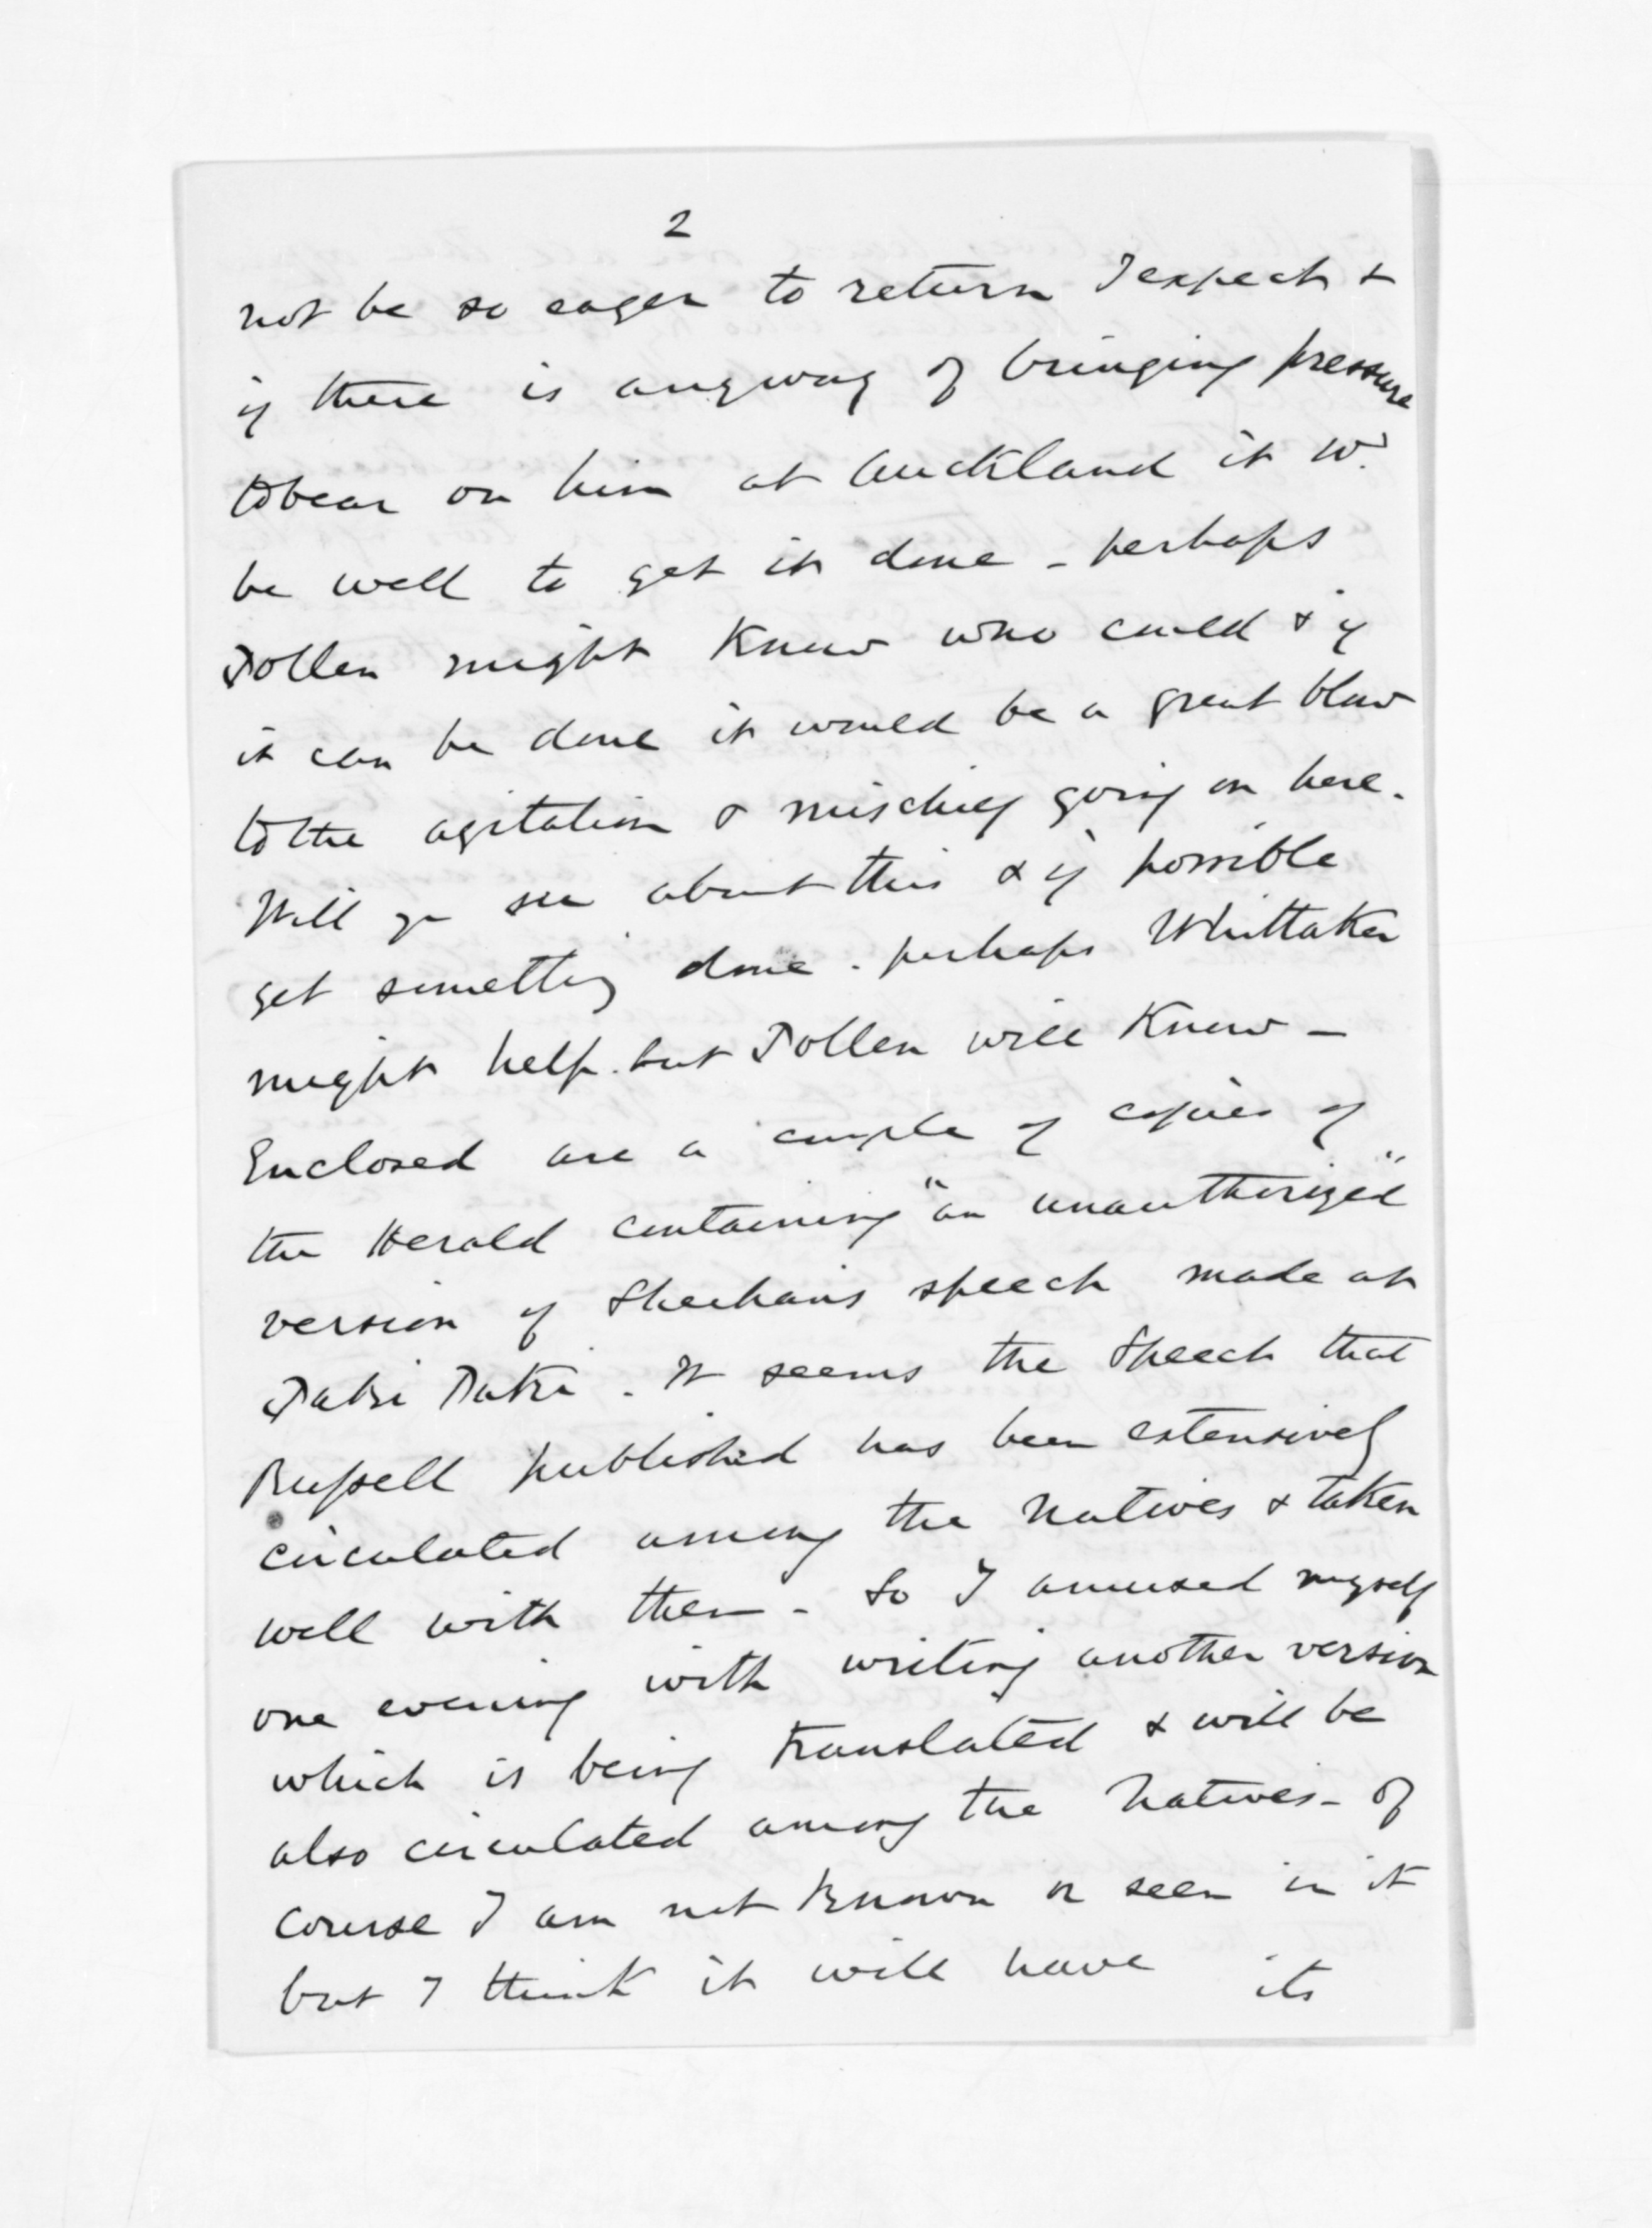 2
not be so eager to return I expect &
if there is anyway of bringing pressure
to bear on him at Auckland it wd.
be well to get it done - perhaps
Pollen might know who could & if
it can be done it would be a great blow
to the agitation & mischief going on here.
Will you see about this & if possible
get something done. perhaps Whittaker
might help. but Pollen will know -
Enclosed are a couple of copies of
the Herald containing "an unauthorized"
version of Sheehan's speech made at
Paki Paki. It seems the Speech that
Russell published has been extensively
circulated among the Natives & taken
well with them - So I amused myself
one evening with writing another version
which is being translated & will be
also circulated among the Natives - Of
course I am not known or seen in it
but I think it will have its